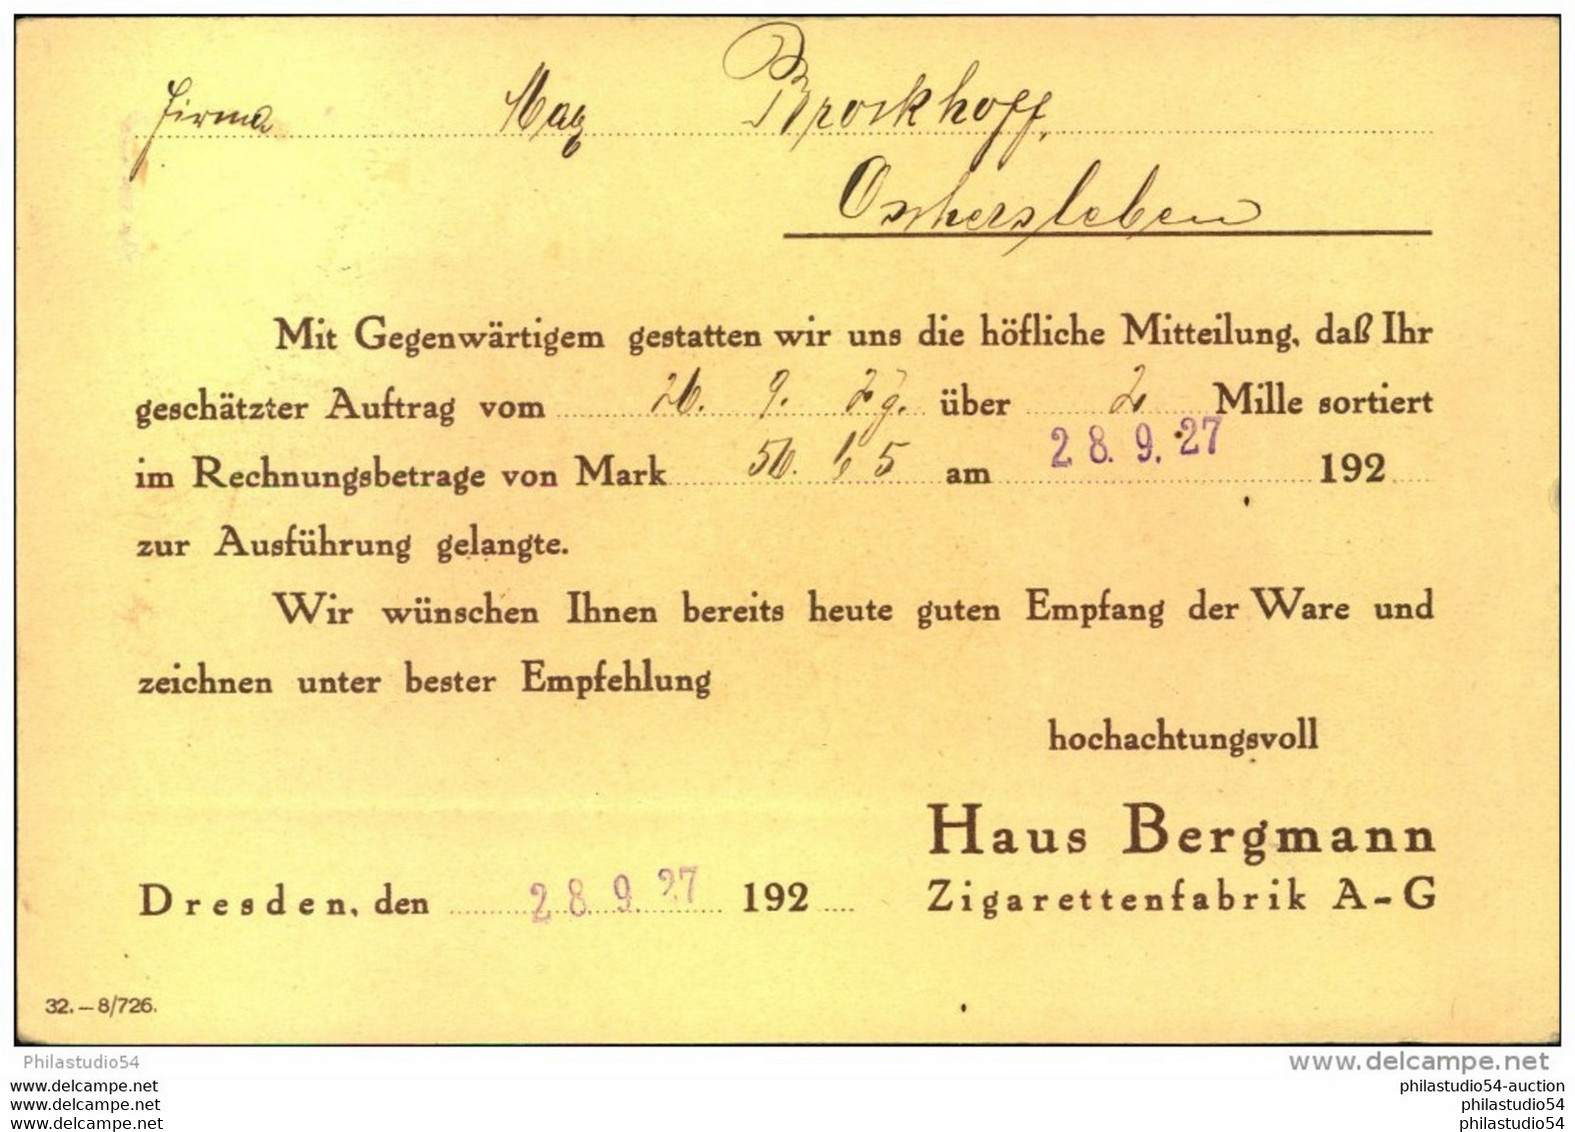 Firma Max Brockhoff,
Oschersleben
Mit Gegenwärtigem gestatten wir uns die höfliche Mitteilung, daß Ihr
geschätzter Auftrag vom 26. 9. 27. über 2 Mille sortiert
im Rechnungsbetrage von Mark 56. 65 am 28. 9. 27 192
zur Ausführung gelangte.
Wir wünschen Ihnen bereits heute guten Empfang der Ware und
zeichnen unter bester Empfehlung
hochachtungsvoll
Haus Bergmann
Dresden, den 28. 9. 27 192
Zigarettenfabrik A-G
32.–8/726.
Philastudio54
www.delcampe.net
www.delcampe.net
www.delcampe.net
www.delcampe.net
philastudio54-auction
philastudio54
philastudio54